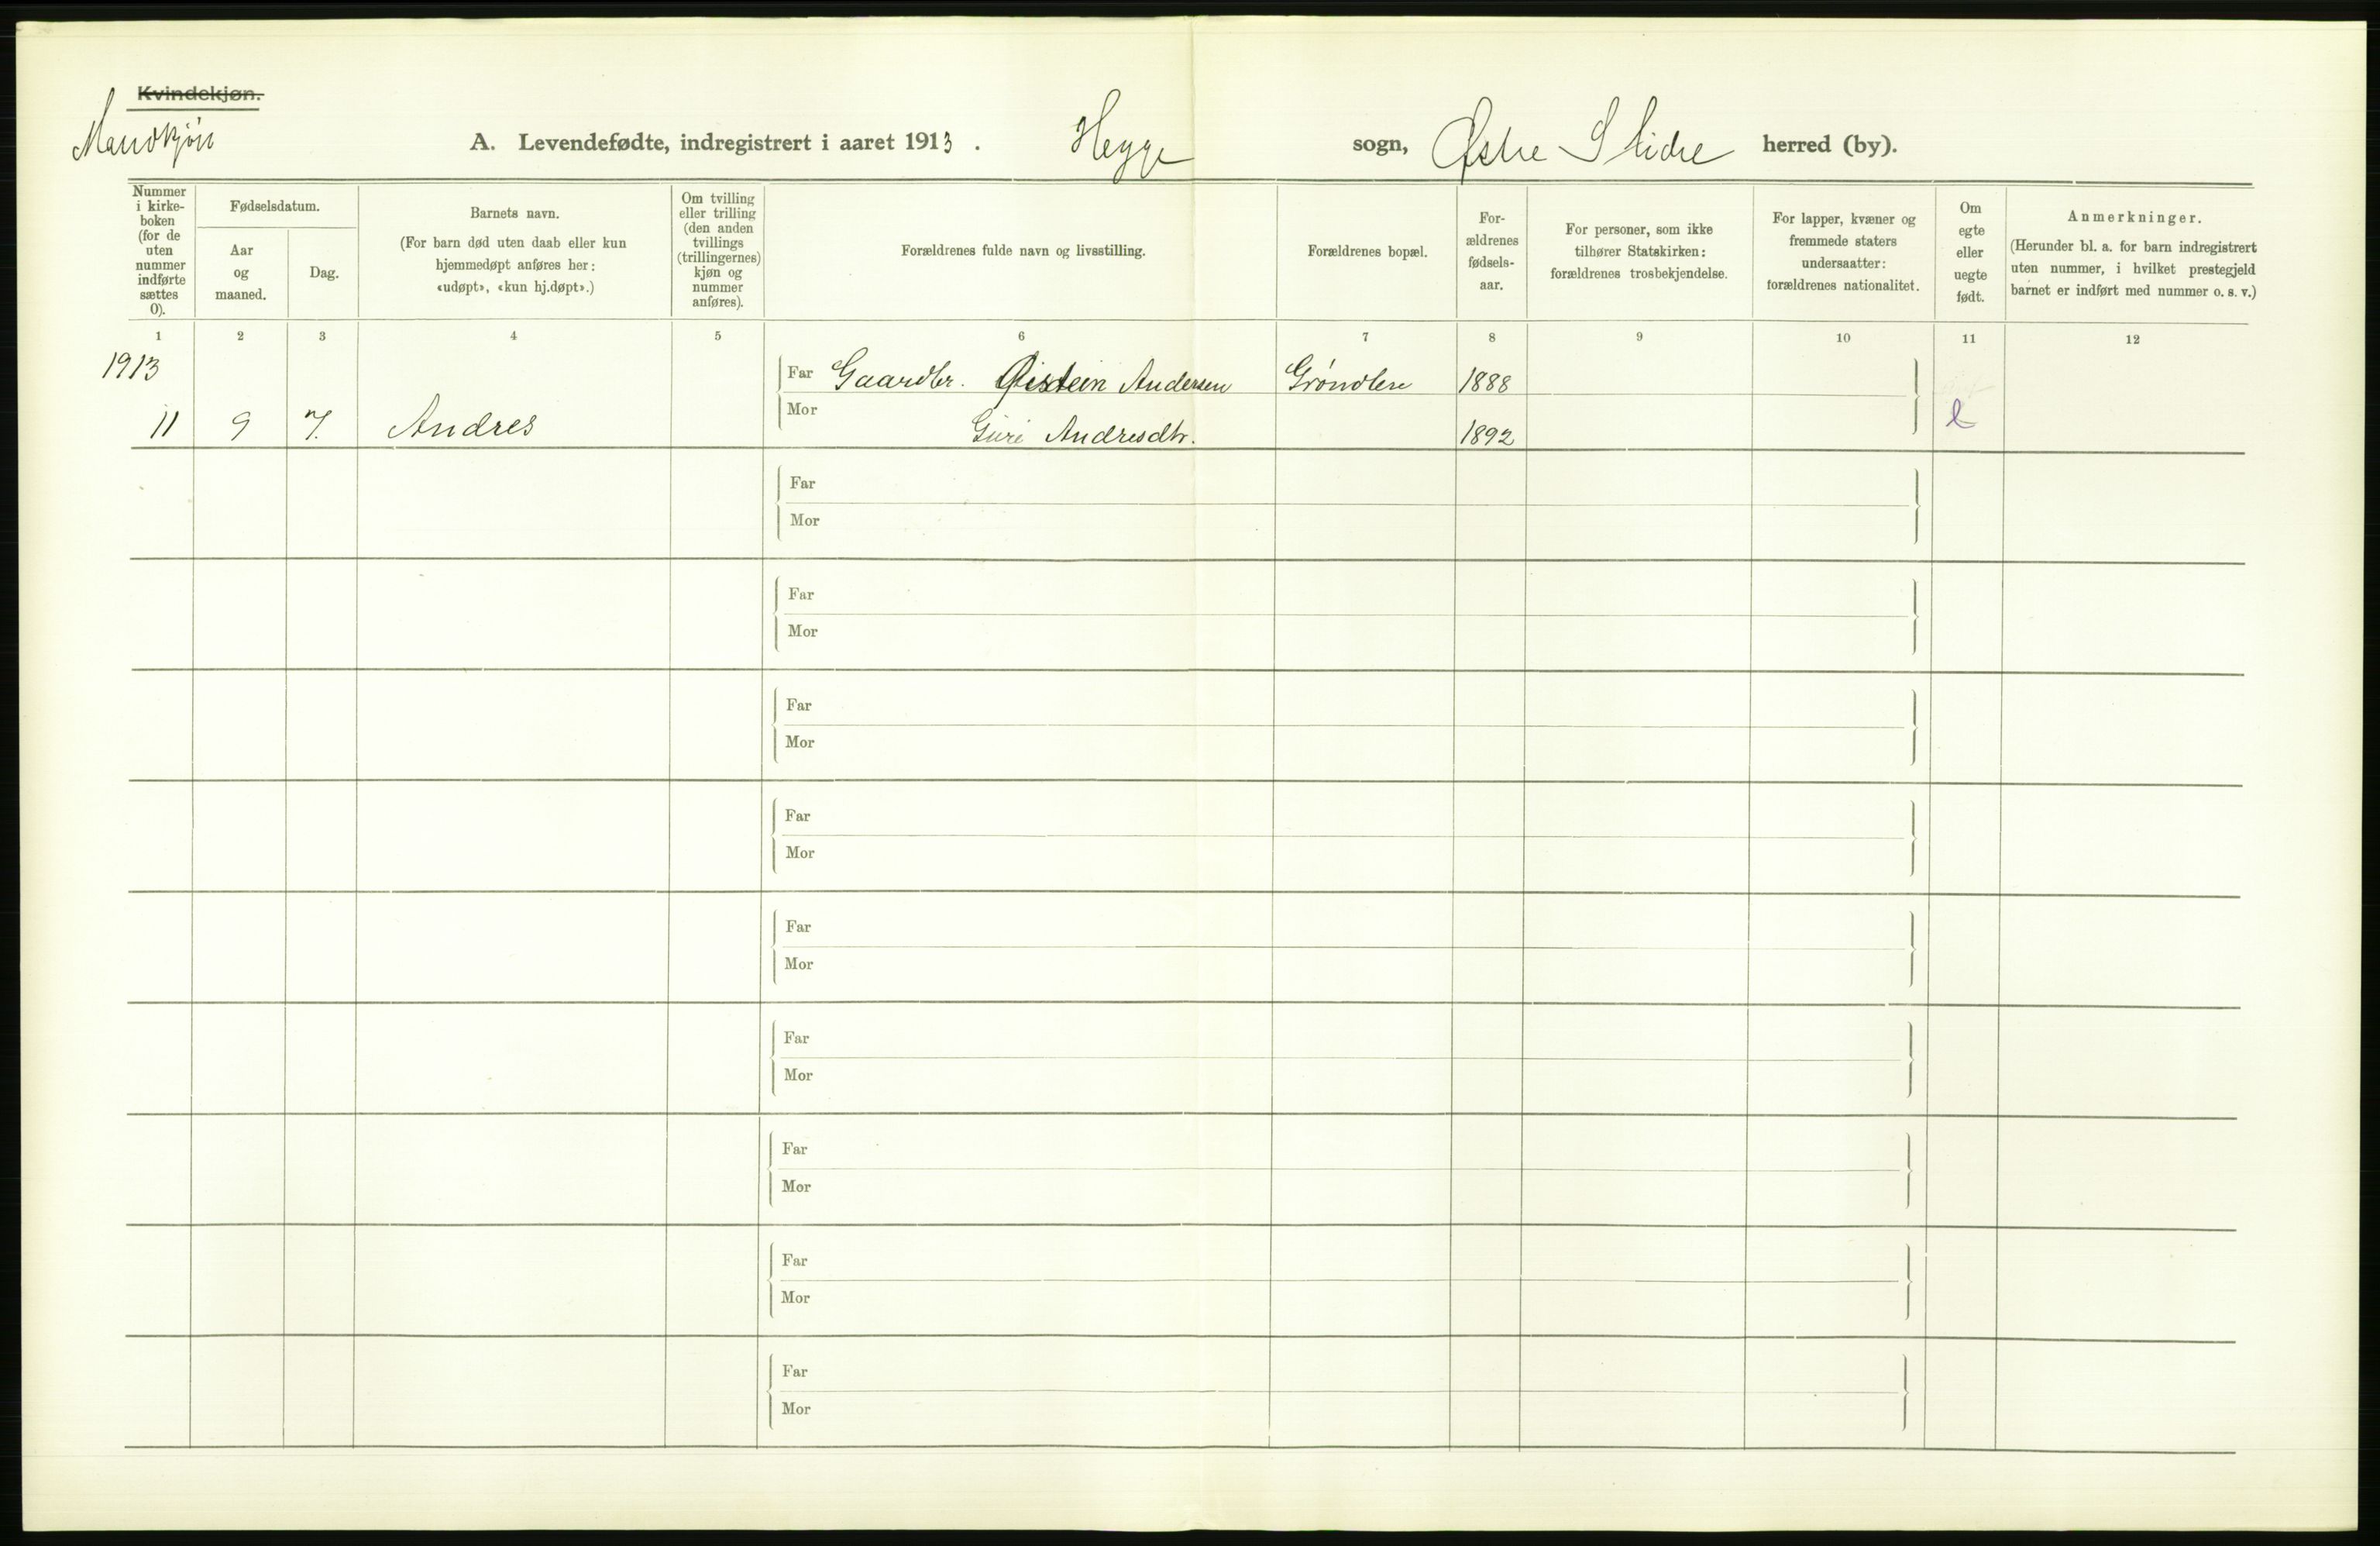 Kvindekjøn.
Mandkjøn
A. Levendefødte, indregistrert i aaret 1913. Hegge sogn, Østre Slidre herred (by).
Nummer i kirke-boken (for de uten nummer indførte sættes 0).
Fødselsdatum.
Aar og maaned.
Dag.
Barnets navn.
(For barn død uten daab eller kun
hjemmedøpt anføres her:
«udøpt», «kun hj.døpt».)
Om tvilling
eller trilling
(den anden
tvillings
(trillingernes)
kjøn og
nummer
anføres).
Forældrenes fulde navn og livsstilling.
Forældrenes bopæl.
For-
ældrenes
fødsels-
aar.
For personer, som ikke
tilhører Statskirken:
forældrenes trosbekjendelse.
For lapper, kvæner og
fremmede staters
undersaatter:
forældrenes nationalitet.
Om
egte
eller
uegte
født.
Anmerkninger.
(Herunder bl. a. for barn indregistrert
uten nummer, i hvilket prestegjeld
barnet er indført med nummer o. s. v.)
1 2 3 4 5 6 7 8 9 10 11 12
1913
Far Gaardbr. Øistein Andersen Grønolen 1888
11 9 7. Andres Mor Guri Andresdtr. 1892 e
Far
Mor
Far
Mor
Far
Mor
Far
Mor
Far
Mor
Far
Mor
Far
Mor
Far
Mor
Far
Mor